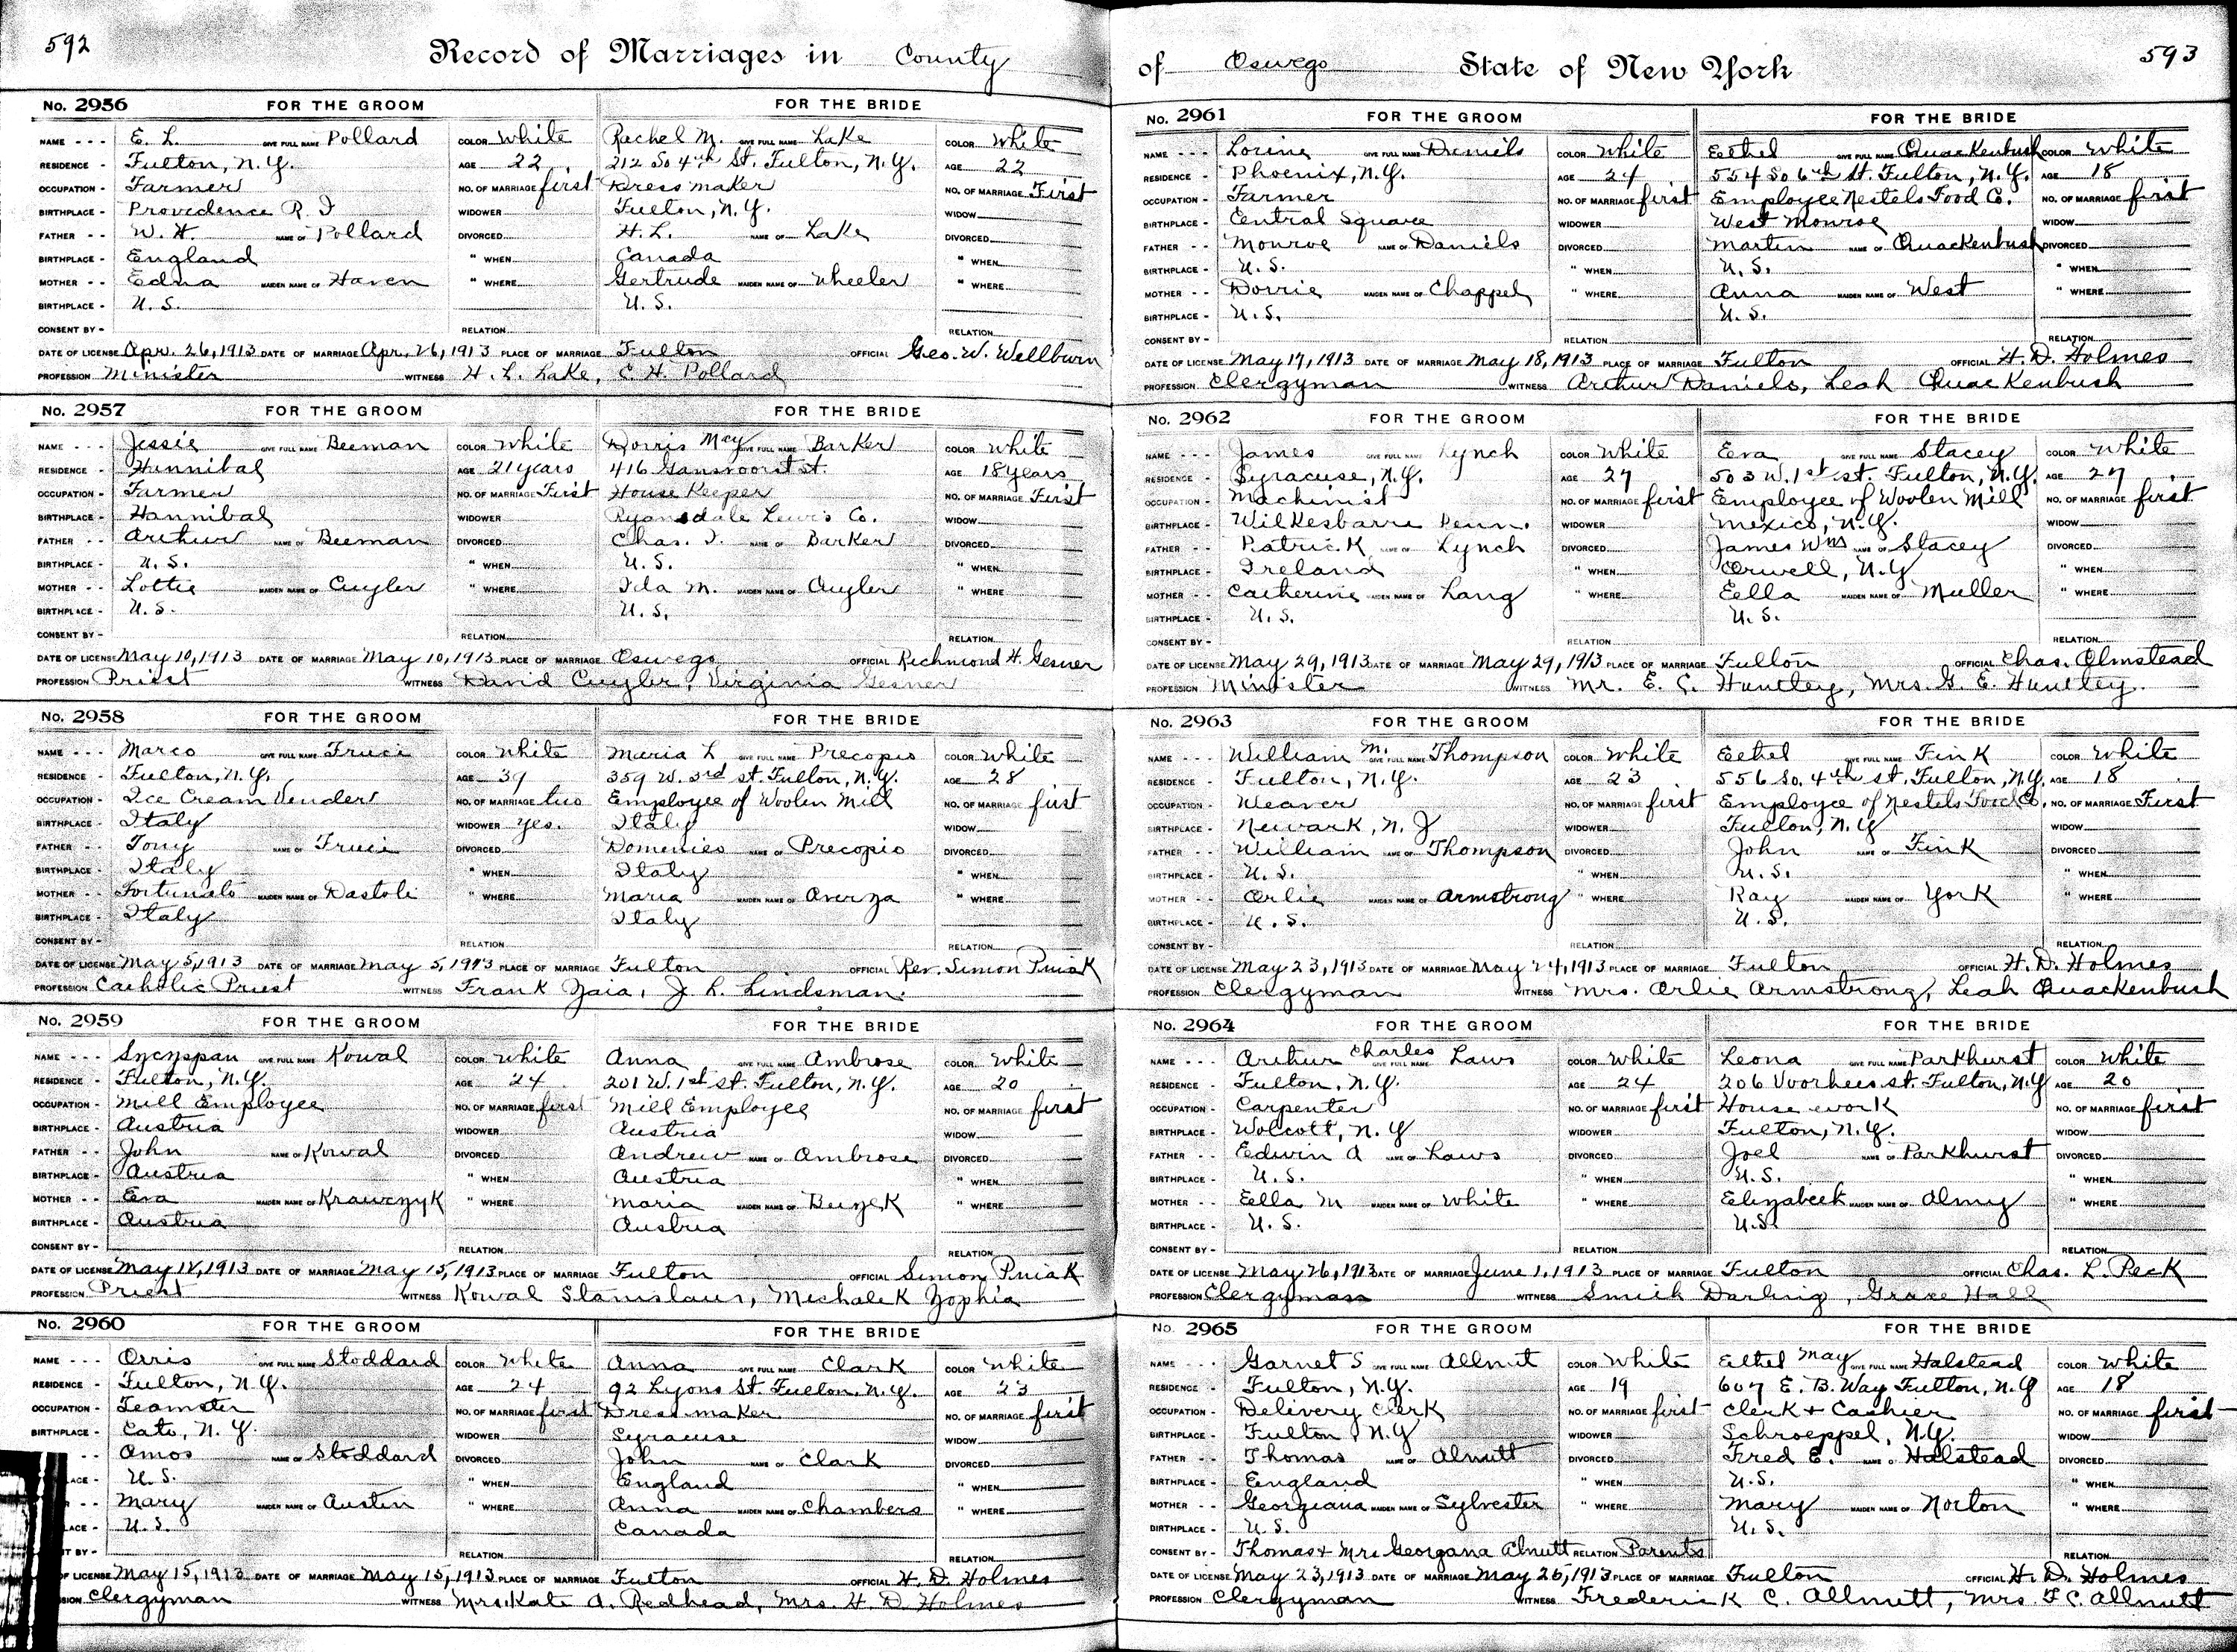 592
Record of Marriages in County
No. 2956 FOR THE GROOM FOR THE BRIDE
NAME - - - E. L. GIVE FULL NAME Pollard COLOR White Rechel M. GIVE FULL NAME Lake COLOR White
RESIDENCE - Fulton, N.Y. AGE 22 212 So 4th St. Fulton, N.Y. AGE 22
OCCUPATION - Farmer NO. OF MARRIAGE first Dressmaker NO. OF MARRIAGE First
BIRTHPLACE - Providence R.I WIDOWER Fulton, N.Y. WIDOW
FATHER - - W. H. NAME OF Pollard DIVORCED H. L. NAME OF Lake DIVORCED
BIRTHPLACE - England " WHEN Canada " WHEN
MOTHER - - Edna MAIDEN NAME OF Haven " WHERE Gertrude MAIDEN NAME OF Wheeler " WHERE
BIRTHPLACE - U.S. U.S.
CONSENT BY - RELATION RELATION
DATE OF LICENSE Apr. 26, 1913 DATE OF MARRIAGE Apr. 26, 1913 PLACE OF MARRIAGE Fulton OFFICIAL Geo. W. Wellburn
PROFESSION Minister WITNESS H. L. Lake, C. H. Pollard
No. 2957 FOR THE GROOM FOR THE BRIDE
NAME - - - Jessie GIVE FULL NAME Beeman COLOR White Dorris May GIVE FULL NAME Barker COLOR White
RESIDENCE - Hannibal AGE 21 years 416 Gansvoorst st. AGE 18 years
OCCUPATION - Farmer NO. OF MARRIAGE First House Keeper NO. OF MARRIAGE First
BIRTHPLACE - Hannibal WIDOWER Ryonsdale Lewis Co. WIDOW
FATHER - - Arthur NAME OF Beeman DIVORCED Chas. I. NAME OF Barker DIVORCED
BIRTHPLACE - U.S. " WHEN U.S. " WHEN
MOTHER - - Lottie MAIDEN NAME OF Cuyler " WHERE Ida M. MAIDEN NAME OF Cuyler " WHERE
BIRTHPLACE - U.S. U.S.
CONSENT BY - RELATION RELATION
DATE OF LICENSE May 10, 1913 DATE OF MARRIAGE May 10, 1913 PLACE OF MARRIAGE Oswego OFFICIAL Richmond H. Gesner
PROFESSION Priest WITNESS David Cuyler, Virginia Gesner
No. 2958 FOR THE GROOM FOR THE BRIDE
NAME - - - Marco GIVE FULL NAME Fruci COLOR White Maria L GIVE FULL NAME Precopio COLOR White
RESIDENCE - Fulton, N.Y. AGE 39 359 W. 3rd st. Fulton, N.Y. AGE 28
OCCUPATION - Ice Cream Vender NO. OF MARRIAGE two Employee of Woolen Mill NO. OF MARRIAGE first
BIRTHPLACE - Italy WIDOWER yes. Italy WIDOW
FATHER - - Tony NAME OF Fruci DIVORCED Domenico NAME OF Precopio DIVORCED
BIRTHPLACE - Italy " WHEN Italy " WHEN
MOTHER - - Fortunato MAIDEN NAME OF Dastoli " WHERE Maria MAIDEN NAME OF Averza " WHERE
BIRTHPLACE - Italy Italy
CONSENT BY - RELATION RELATION
DATE OF LICENSE May 5, 1913 DATE OF MARRIAGE May 5, 1913 PLACE OF MARRIAGE Fulton OFFICIAL Rev. Simon Pniak
PROFESSION Catholic Priest WITNESS Frank Zaia, J. L. Lindsman.
No. 2959 FOR THE GROOM FOR THE BRIDE
NAME - - - Szczspan GIVE FULL NAME Kowal COLOR White Anna GIVE FULL NAME Ambrose COLOR White
RESIDENCE - Fulton, N.Y. AGE 24 201 W. 1st st. Fulton, N.Y. AGE 20
OCCUPATION - Mill Employee NO. OF MARRIAGE first Mill Employee NO. OF MARRIAGE first
BIRTHPLACE - Austria WIDOWER Austria WIDOW
FATHER - - John NAME OF Kowal DIVORCED Andrew NAME OF Ambrose DIVORCED
BIRTHPLACE - Austria " WHEN Austria " WHEN
MOTHER - - Eva MAIDEN NAME OF Krawczyk " WHERE Maria MAIDEN NAME OF " WHERE
BIRTHPLACE - Austria Austria
CONSENT BY - RELATION RELATION
DATE OF LICENSE May 12, 1913 DATE OF MARRIAGE May 15, 1913 PLACE OF MARRIAGE Fulton OFFICIAL Simon Pniak
PROFESSION Priest WITNESS Kowal Stanislaus, Michalek Zophia
No. 2960 FOR THE GROOM FOR THE BRIDE
NAME - - - Orris GIVE FULL NAME Stoddard COLOR White Anna GIVE FULL NAME Clark COLOR White
RESIDENCE - Fulton, N.Y. AGE 24 92 Lyons St. Fulton, N.Y. AGE 23
OCCUPATION - Teamster NO. OF MARRIAGE first Dressmaker NO. OF MARRIAGE first
BIRTHPLACE - Cato, N.Y. WIDOWER Syracuse WIDOW
- - Amos NAME OF Stoddard DIVORCED John NAME OF Clark DIVORCED
ACE - U.S. " WHEN England " WHEN
- - Mary MAIDEN NAME OF Austin " WHERE Anna MAIDEN NAME OF Chambers " WHERE
LACE - U.S. Canada
T BY - RELATION RELATION
OF LICENSE May 15, 1913 DATE OF MARRIAGE May 15, 1913 PLACE OF MARRIAGE Fulton OFFICIAL H. D. Holmes
SION Clergyman WITNESS Mrs. Kate A. Redhead, Mrs. H. D. Holmes
of Oswego State of New York
593
No. 2961 FOR THE GROOM FOR THE BRIDE
NAME - - - Lorine GIVE FULL NAME Daniels COLOR White Eethel GIVE FULL NAME Quackenbush COLOR White
RESIDENCE - Phoenix, N.Y. AGE 24 554 So 6th St. Fulton, N.Y. AGE 18
OCCUPATION - Farmer NO. OF MARRIAGE first Employee Nestels Food Co. NO. OF MARRIAGE first
BIRTHPLACE - Central Square WIDOWER West Monroe WIDOW
FATHER - - Monroe NAME OF Daniels DIVORCED Martin NAME OF Quackenbush DIVORCED
BIRTHPLACE - U.S. " WHEN U.S. " WHEN
MOTHER - - Dorrie MAIDEN NAME OF Chappel " WHERE Anna MAIDEN NAME OF West " WHERE
BIRTHPLACE - U.S. U.S.
CONSENT BY - RELATION RELATION
DATE OF LICENSE May 17, 1913 DATE OF MARRIAGE May 18, 1913 PLACE OF MARRIAGE Fulton OFFICIAL H. D. Holmes
PROFESSION Clergyman WITNESS Arthur Daniels, Leah Quackenbush
No. 2962 FOR THE GROOM FOR THE BRIDE
NAME - - - James GIVE FULL NAME Lynch COLOR White Eva GIVE FULL NAME Stacey COLOR White
RESIDENCE - Syracuse, N.Y. AGE 27 503 W. 1st st. Fulton, N.Y. AGE 27
OCCUPATION - Machinist NO. OF MARRIAGE first Employee of Woolen Mill NO. OF MARRIAGE first
BIRTHPLACE - Wilkesbarre Penn. WIDOWER Mexico, N.Y. WIDOW
FATHER - - Patrick NAME OF Lynch DIVORCED James Wm NAME OF Stacey DIVORCED
BIRTHPLACE - Ireland " WHEN Orwell, N.Y " WHEN
MOTHER - - Catherine MAIDEN NAME OF Lang " WHERE Eella MAIDEN NAME OF Muller " WHERE
BIRTHPLACE - U.S. U.S.
CONSENT BY - RELATION RELATION
DATE OF LICENSE May 29, 1913 DATE OF MARRIAGE May 29, 1913 PLACE OF MARRIAGE Fulton OFFICIAL Chas. Olmstead
PROFESSION Minister WITNESS Mr. E. C. Huntley, Mrs. G. E. Huntley.
No. 2963 FOR THE GROOM FOR THE BRIDE
NAME - - - William M. GIVE FULL NAME Thompson COLOR White Eethel GIVE FULL NAME Fink COLOR White
RESIDENCE - Fulton, N.Y. AGE 23 556 So. 4th st. Fulton, N.Y. AGE 18
OCCUPATION - Weaver NO. OF MARRIAGE first Employee of Nestels Food Co. NO. OF MARRIAGE First
BIRTHPLACE - Newark, N.J WIDOWER Fulton, N.Y WIDOW
FATHER - - William NAME OF Thompson DIVORCED John NAME OF Fink DIVORCED
BIRTHPLACE - U.S. " WHEN U.S. " WHEN
MOTHER - - Orlie MAIDEN NAME OF Armstrong " WHERE Ray MAIDEN NAME OF York " WHERE
BIRTHPLACE - U.S. U.S.
CONSENT BY - RELATION RELATION
DATE OF LICENSE May 23, 1913 DATE OF MARRIAGE May 24, 1913 PLACE OF MARRIAGE Fulton OFFICIAL H. D. Holmes
PROFESSION Clergyman WITNESS Mrs. Orlie Armstrong, Leah Quackenbush
No. 2964 FOR THE GROOM FOR THE BRIDE
NAME - - - Arthur Charles GIVE FULL NAME Laws COLOR White Leona GIVE FULL NAME Parkhurst COLOR White
RESIDENCE - Fulton, N.Y. AGE 24 206 Voorhees st. Fulton, N.Y AGE 20
OCCUPATION - Carpenter NO. OF MARRIAGE first House work NO. OF MARRIAGE first
BIRTHPLACE - Wolcott, N.Y WIDOWER Fulton, N.Y. WIDOW
FATHER - - Edwin A NAME OF Laws DIVORCED Joel NAME OF Parkhurst DIVORCED
BIRTHPLACE - U.S. " WHEN U.S. " WHEN
MOTHER - - Eella M MAIDEN NAME OF White " WHERE Elizabeth MAIDEN NAME OF Almy " WHERE
BIRTHPLACE - U.S. U.S.
CONSENT BY - RELATION RELATION
DATE OF LICENSE May 26, 1913 DATE OF MARRIAGE June 1, 1913 PLACE OF MARRIAGE Fulton OFFICIAL Chas. L. Peck
PROFESSION Clergyman WITNESS Smith Darling, Grace Hall
No. 2965 FOR THE GROOM FOR THE BRIDE
NAME - - - Garnet S GIVE FULL NAME Allnut COLOR White Eethel May GIVE FULL NAME Halstead COLOR White
RESIDENCE - Fulton, N.Y. AGE 19 607 E. B. Way Fulton, N.Y AGE 18
OCCUPATION - Delivery Clerk NO. OF MARRIAGE first Clerk + Cashier NO. OF MARRIAGE first
BIRTHPLACE - Fulton, N.Y WIDOWER Schroeppel, N.Y. WIDOW
FATHER - - Thomas NAME OF Alnutt DIVORCED Fred E. NAME OF Halstead DIVORCED
BIRTHPLACE - England " WHEN U.S. " WHEN
MOTHER - - Georgiana MAIDEN NAME OF Sylvester " WHERE Mary MAIDEN NAME OF Norton " WHERE
BIRTHPLACE - U.S. U.S.
CONSENT BY - Thomas + Mrs Georgana Alnutt RELATION Parents RELATION
DATE OF LICENSE May 23, 1913 DATE OF MARRIAGE May 26, 1913 PLACE OF MARRIAGE Fulton OFFICIAL H. D. Holmes
PROFESSION Clergyman WITNESS Frederick C. Allnutt, Mrs F C. Allnutt